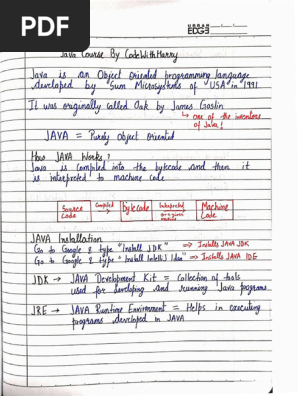 PDF
URBAN
EDGE
Java Course By CodeWithHarry
Java is an Object oriented programming language
developed by Sun Microsystems of USA in 1991
It was originally called Oak by James Goslin
↳ one of the inventors
of Java!
JAVA = Purely object oriented
How JAVA Works?
Java is compiled into the bytecode and then it
is interpreted to machine code
Source Code Compiled bytecode Interpreted Machine Code
JAVA Installation
Go to Google & type "Install JDK" ⇒ Installs JAVA JDK
Go to Google & type "Install IntelliJ Idea" ⇒ Installs JAVA IDE
JDK → JAVA Development Kit = Collection of tools
used for developing and running Java programs
JRE → JAVA Runtime Environment = Helps in executing
programs developed in JAVA